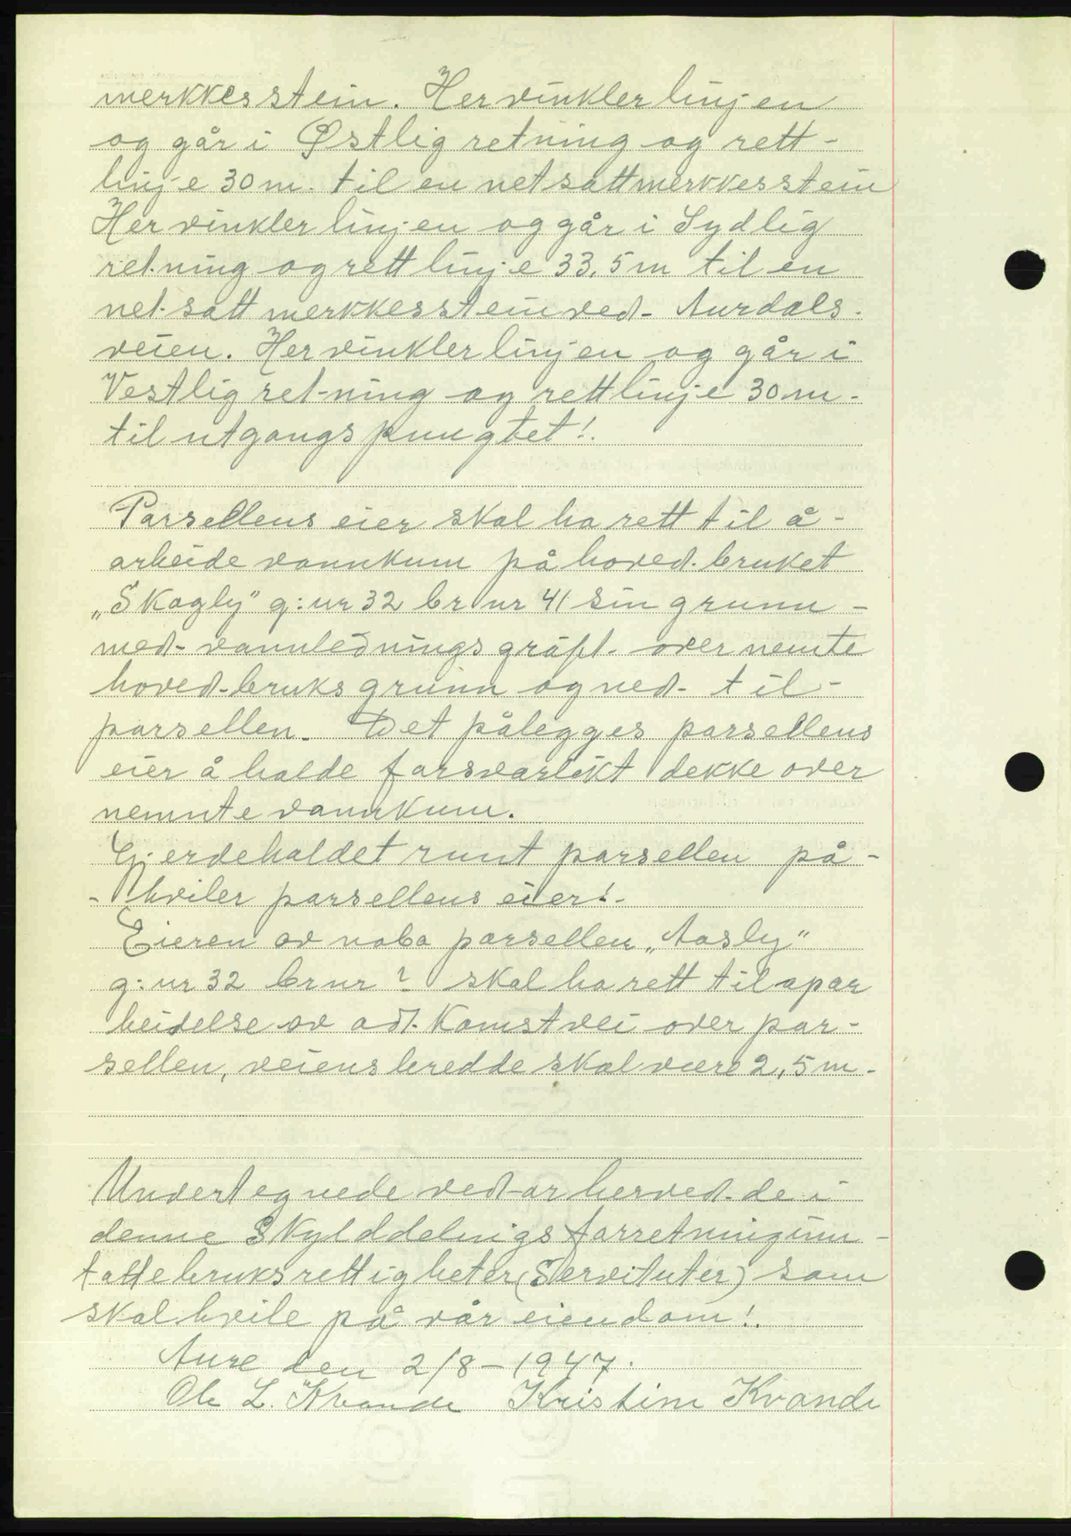 merkkesstein. Her vinkler linjen
og går i Østlig retning og rett-
linje 30 m. til en netsatt merkkesstein
Her vinkler linjen og går i Sydlig
retning og rett linje 33,5 m til en
netsatt merkkesstein ved Aurdals-
veien. Her vinkler linjen og går i
Vestlig retning og rett linje 30 m.
til utgangspungtet!.
Parsellens eier skal ha rett til å-
arbeide vannkum på hovedbruket
„Skogly" g:nr 32 br nr 41 sin grunn -
med vannledningsgrøft over nemte
hovedbruks grunn og ned til-
parsellen. Det pålegges parsellens
eier å halde farsvarlikt dekke over
nemnte vannkum.
Gjerdehaldet runt parsellen på-
- hviler parsellens eier!-
Eieren av nabo parsellen „Aasly"
g:nr 32 brnr ? skal ha rett til apar
beidelse av adkamstvei over par-
sellen, veiens bredde skal være 2,5 m.
Undertegnede vedtar herved de i
denne Skylddelnigsfarretning inn-
tatte bruksrettigheter (Servituter) sam
skal hvile på vår eiendam!.
Aure den 2/8-1947.
Ole L. Kvande Kristine Kvande